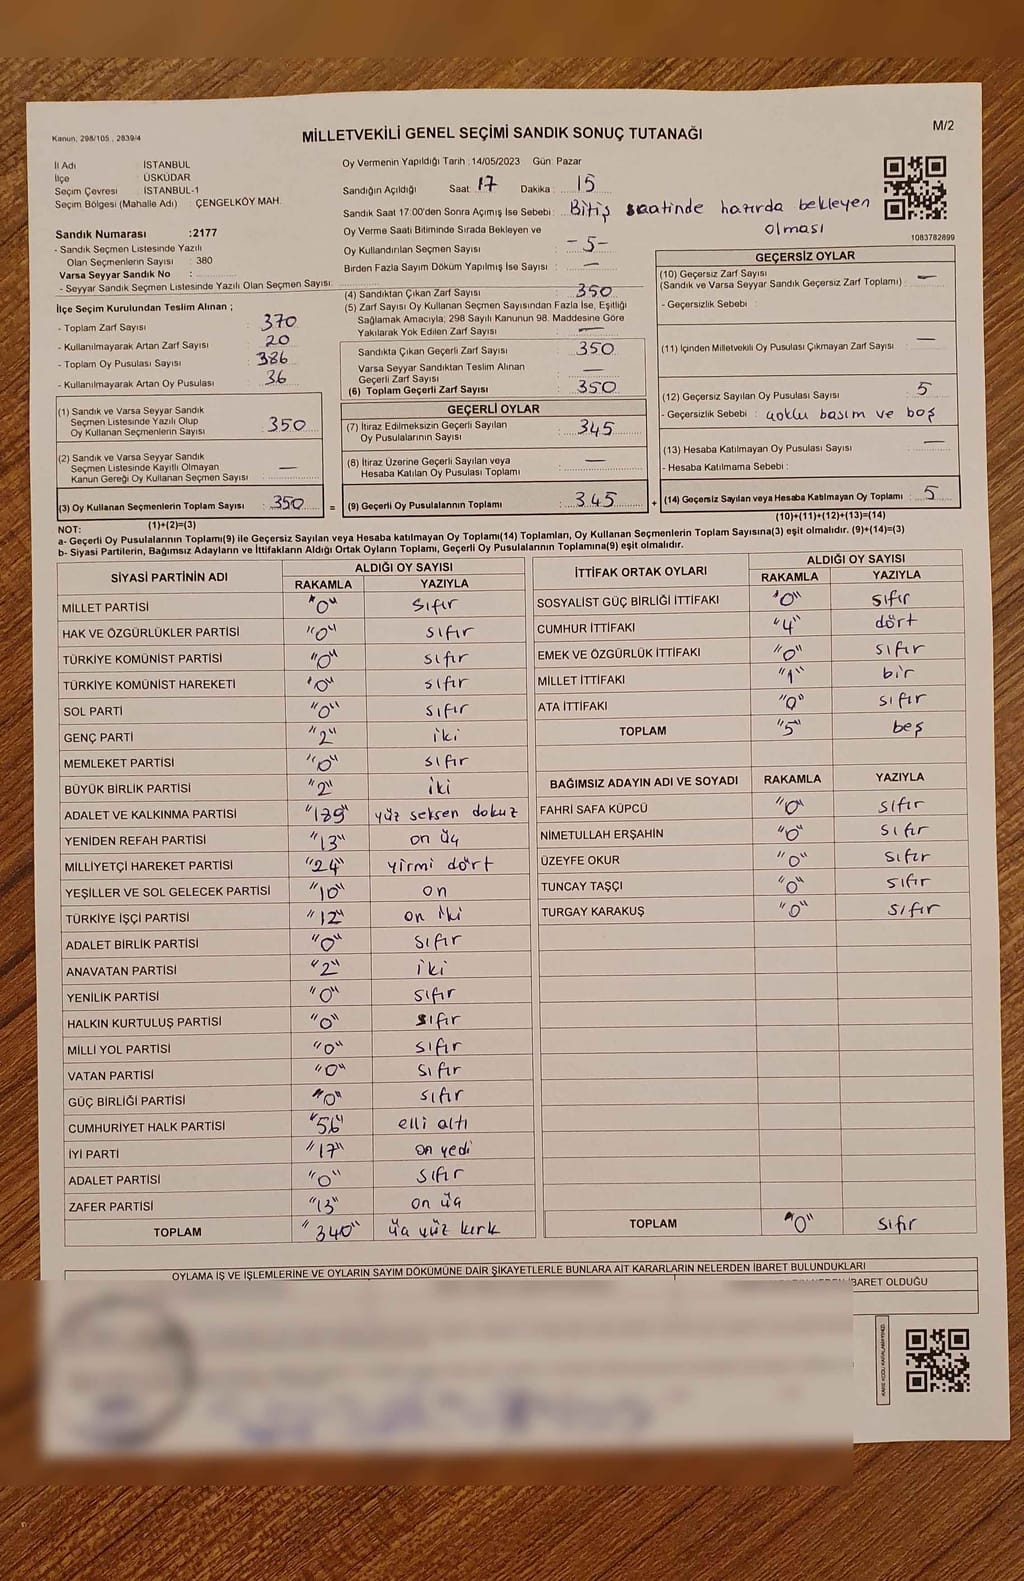 Kanun: 298/105 , 2839/4
MİLLETVEKİLİ GENEL SEÇİMİ SANDIK SONUÇ TUTANAĞI
M/2
İl Adı : İSTANBUL
İlçe : ÜSKÜDAR
Seçim Çevresi : İSTANBUL-1
Seçim Bölgesi (Mahalle Adı) : ÇENGELKÖY MAH.
Sandık Numarası :2177
- Sandık Seçmen Listesinde Yazılı
Olan Seçmenlerin Sayısı : 380
Varsa Seyyar Sandık No :
- Seyyar Sandık Seçmen Listesinde Yazılı Olan Seçmen Sayısı:
İlçe Seçim Kurulundan Teslim Alınan ;
- Toplam Zarf Sayısı : 370
- Kullanılmayarak Artan Zarf Sayısı : 20
- Toplam Oy Pusulası Sayısı : 386
- Kullanılmayarak Artan Oy Pusulası : 36
(1) Sandık ve Varsa Seyyar Sandık
Seçmen Listesinde Yazılı Olup
Oy Kullanan Seçmenlerin Sayısı : 350
(2) Sandık ve Varsa Seyyar Sandık
Seçmen Listesinde Kayıtlı Olmayan
Kanun Gereği Oy Kullanan Seçmen Sayısı : —
(3) Oy Kullanan Seçmenlerin Toplam Sayısı : 350
(1)+(2)=(3)
Oy Vermenin Yapıldığı Tarih :14/05/2023 Gün: Pazar
Sandığın Açıldığı Saat: 17 Dakika : 15
Sandık Saat 17:00'den Sonra Açımış İse Sebebi: Bitiş saatinde hazırda bekleyen
olması
Oy Verme Saati Bitiminde Sırada Bekleyen ve
Oy Kullandırılan Seçmen Sayısı : -5-
Birden Fazla Sayım Döküm Yapılmış İse Sayısı : —
(4) Sandıktan Çıkan Zarf Sayısı : 350
(5) Zarf Sayısı Oy Kullanan Seçmen Sayısından Fazla İse, Eşitliği
Sağlamak Amacıyla; 298 Sayılı Kanunun 98. Maddesine Göre
Yakılarak Yok Edilen Zarf Sayısı : —
Sandıkta Çıkan Geçerli Zarf Sayısı : 350
Varsa Seyyar Sandıktan Teslim Alınan
Geçerli Zarf Sayısı : —
(6) Toplam Geçerli Zarf Sayısı : 350
GEÇERLİ OYLAR
(7) İtiraz Edilmeksizin Geçerli Sayılan
Oy Pusulalarının Sayısı : 345
(8) İtiraz Üzerine Geçerli Sayılan veya
Hesaba Katılan Oy Pusulası Toplamı : —
= (9) Geçerli Oy Pusulalarının Toplamı : 345 +
1083782899
GEÇERSİZ OYLAR
(10) Geçersiz Zarf Sayısı
(Sandık ve Varsa Seyyar Sandık Geçersiz Zarf Toplamı) : —
- Geçersizlik Sebebi :
(11) İçinden Milletvekili Oy Pusulası Çıkmayan Zarf Sayısı : —
(12) Geçersiz Sayılan Oy Pusulası Sayısı : 5
- Geçersizlik Sebebi : çoklu basım ve boş
(13) Hesaba Katılmayan Oy Pusulası Sayısı : —
- Hesaba Katılmama Sebebi :
(14) Geçersiz Sayılan veya Hesaba Katılmayan Oy Toplamı : 5
(10)+(11)+(12)+(13)=(14)
NOT:
a- Geçerli Oy Pusulalarının Toplamı(9) ile Geçersiz Sayılan veya Hesaba katılmayan Oy Toplamı(14) Toplamları, Oy Kullanan Seçmenlerin Toplam Sayısına(3) eşit olmalıdır. (9)+(14)=(3)
b- Siyasi Partilerin, Bağımsız Adayların ve İttifakların Aldığı Ortak Oyların Toplamı, Geçerli Oy Pusulalarının Toplamına(9) eşit olmalıdır.
SİYASİ PARTİNİN ADI ALDIĞI OY SAYISI
RAKAMLA YAZIYLA
MİLLET PARTİSİ "0" sıfır
HAK VE ÖZGÜRLÜKLER PARTİSİ "0" sıfır
TÜRKİYE KOMÜNİST PARTİSİ "0" sıfır
TÜRKİYE KOMÜNİST HAREKETİ "0" sıfır
SOL PARTİ "0" sıfır
GENÇ PARTİ "2" iki
MEMLEKET PARTİSİ "0" sıfır
BÜYÜK BİRLİK PARTİSİ "2" iki
ADALET VE KALKINMA PARTİSİ "189" yüz seksen dokuz
YENİDEN REFAH PARTİSİ "13" on üç
MİLLİYETÇİ HAREKET PARTİSİ "24" yirmi dört
YEŞİLLER VE SOL GELECEK PARTİSİ "10" on
TÜRKİYE İŞÇİ PARTİSİ "12" on iki
ADALET BİRLİK PARTİSİ "0" sıfır
ANAVATAN PARTİSİ "2" iki
YENİLİK PARTİSİ "0" sıfır
HALKIN KURTULUŞ PARTİSİ "0" sıfır
MİLLİ YOL PARTİSİ "0" sıfır
VATAN PARTİSİ "0" sıfır
GÜÇ BİRLİĞİ PARTİSİ "0" sıfır
CUMHURİYET HALK PARTİSİ "56" elli altı
İYİ PARTİ "17" on yedi
ADALET PARTİSİ "0" sıfır
ZAFER PARTİSİ "13" on üç
TOPLAM "340" üç yüz kırk
İTTİFAK ORTAK OYLARI ALDIĞI OY SAYISI
RAKAMLA YAZIYLA
SOSYALİST GÜÇ BİRLİĞİ İTTİFAKI "0" sıfır
CUMHUR İTTİFAKI "4" dört
EMEK VE ÖZGÜRLÜK İTTİFAKI "0" sıfır
MİLLET İTTİFAKI "1" bir
ATA İTTİFAKI "0" sıfır
TOPLAM "5" beş
BAĞIMSIZ ADAYIN ADI VE SOYADI RAKAMLA YAZIYLA
FAHRİ SAFA KÜPCÜ "0" sıfır
NİMETULLAH ERŞAHİN "0" sıfır
ÜZEYFE OKUR "0" sıfır
TUNCAY TAŞÇI "0" sıfır
TURGAY KARAKUŞ "0" sıfır
TOPLAM "0" sıfır
OYLAMA İŞ VE İŞLEMLERİNE VE OYLARIN SAYIM DÖKÜMÜNE DAİR ŞİKAYETLERLE BUNLARA AİT KARARLARIN NELERDEN İBARET BULUNDUKLARI
İBARET OLDUĞU